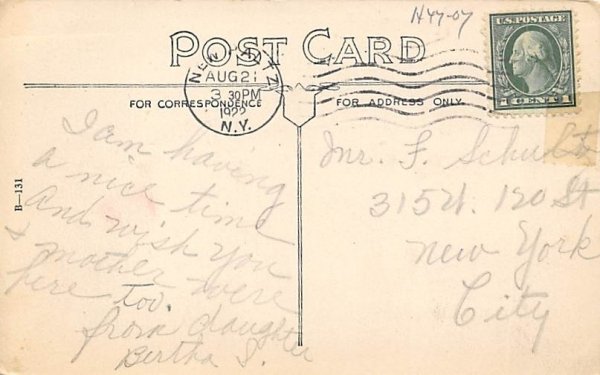 H47-07
POST CARD
U.S. POSTAGE
1 CENT 1
NEW PALTZ
AUG 21
3 30PM
1922
N.Y.
FOR CORRESPONDENCE
FOR ADDRESS ONLY.
B—131
I am having
a nice time
And wish you
& mother were
here too.
from daughter
Bertha S.
Mr. F. Schultz
315 W. 120 St
New York
City